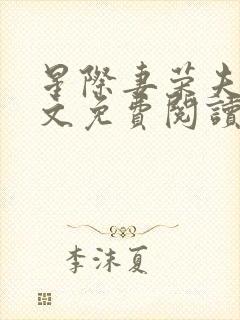 星際妻荣夫
文免費閱讀
李沫夏